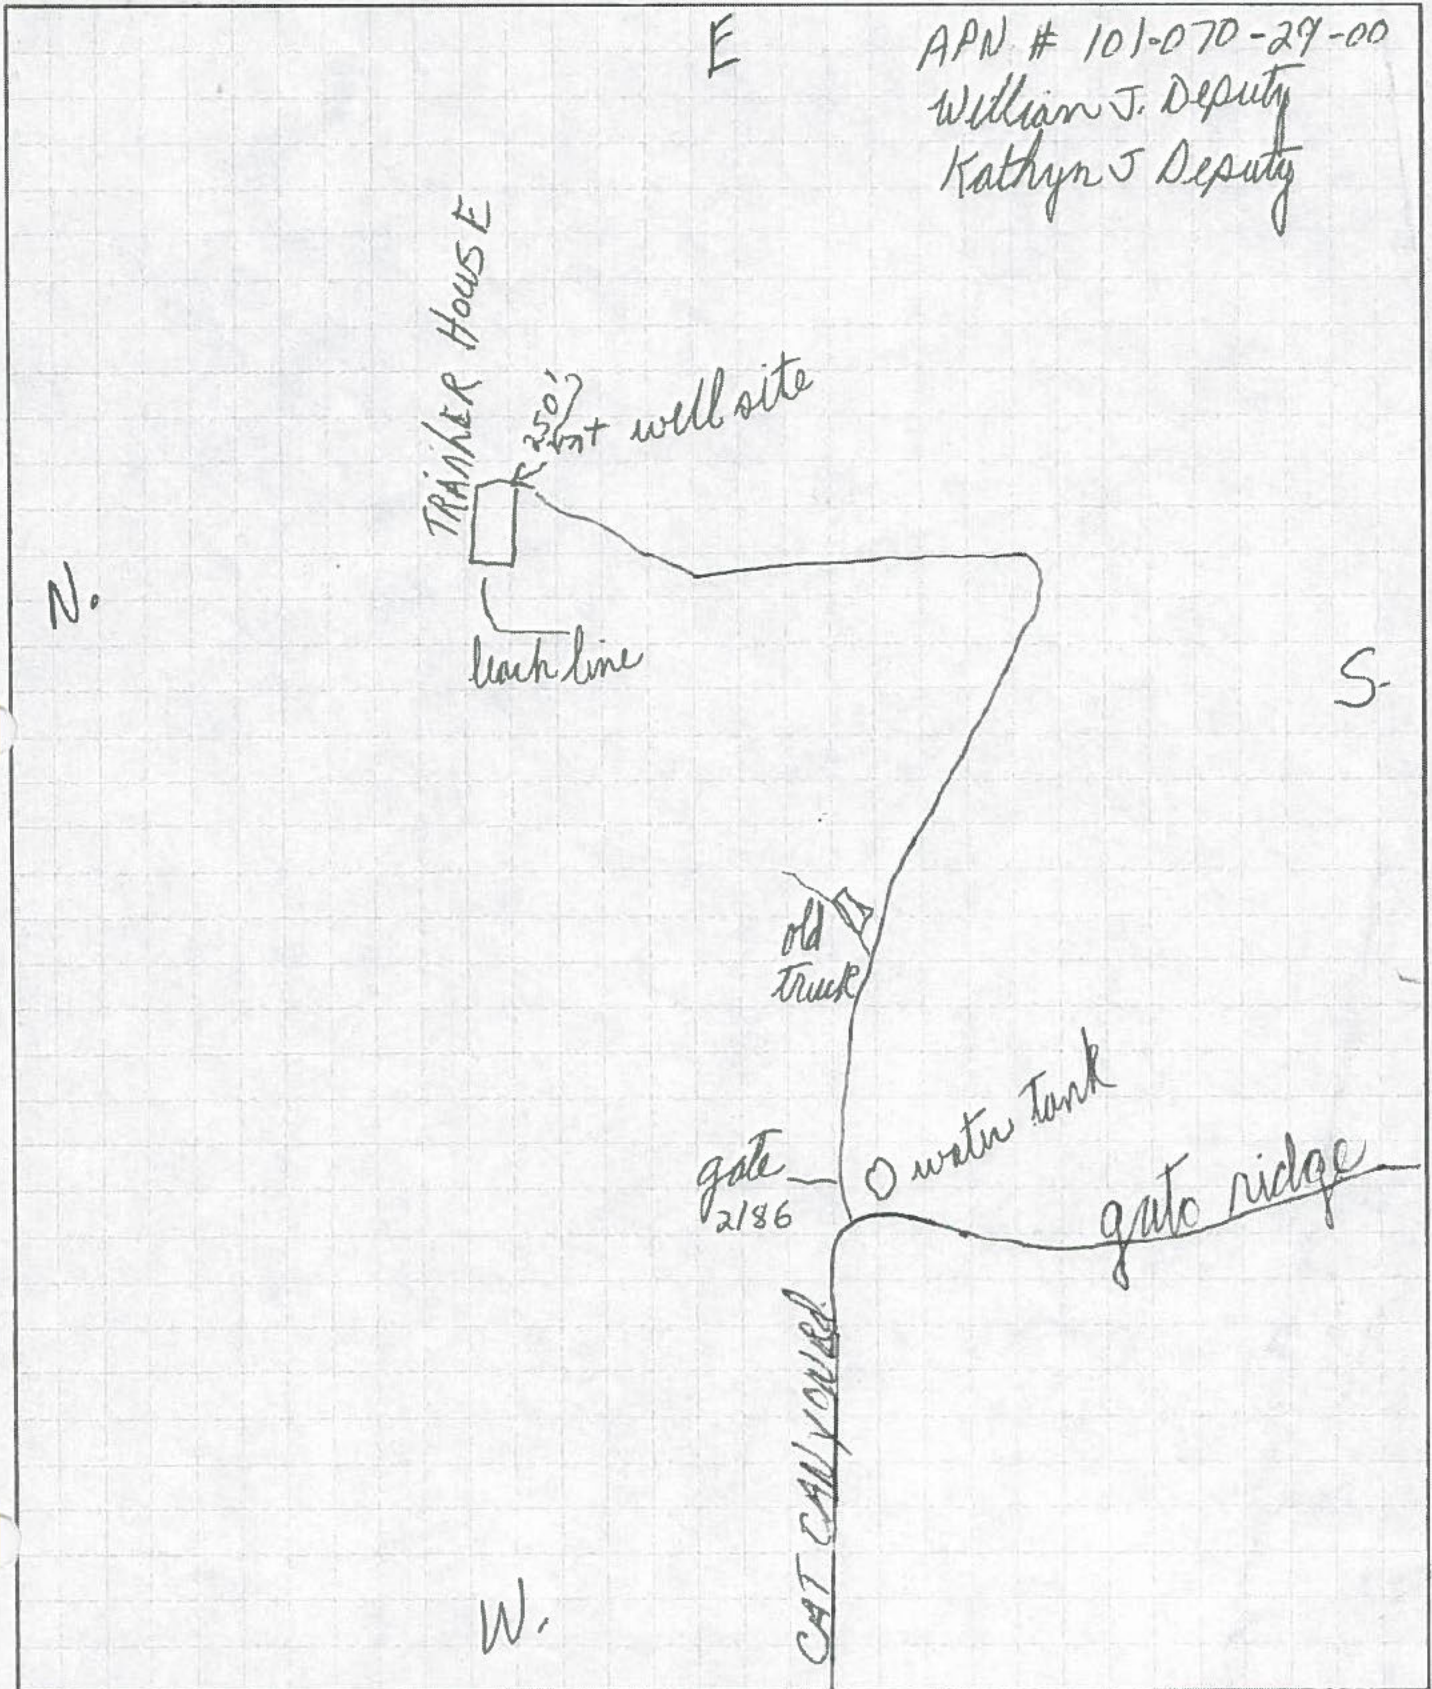 E
APN # 101-070-29-00
William J. Deputy
Kathyn J Deputy
TRAILER HOUSE
250'
well site
N.
leach line
S-
old
truck
water tank
gate
2186
gato ridge
CAT CANYON Rd.
W.